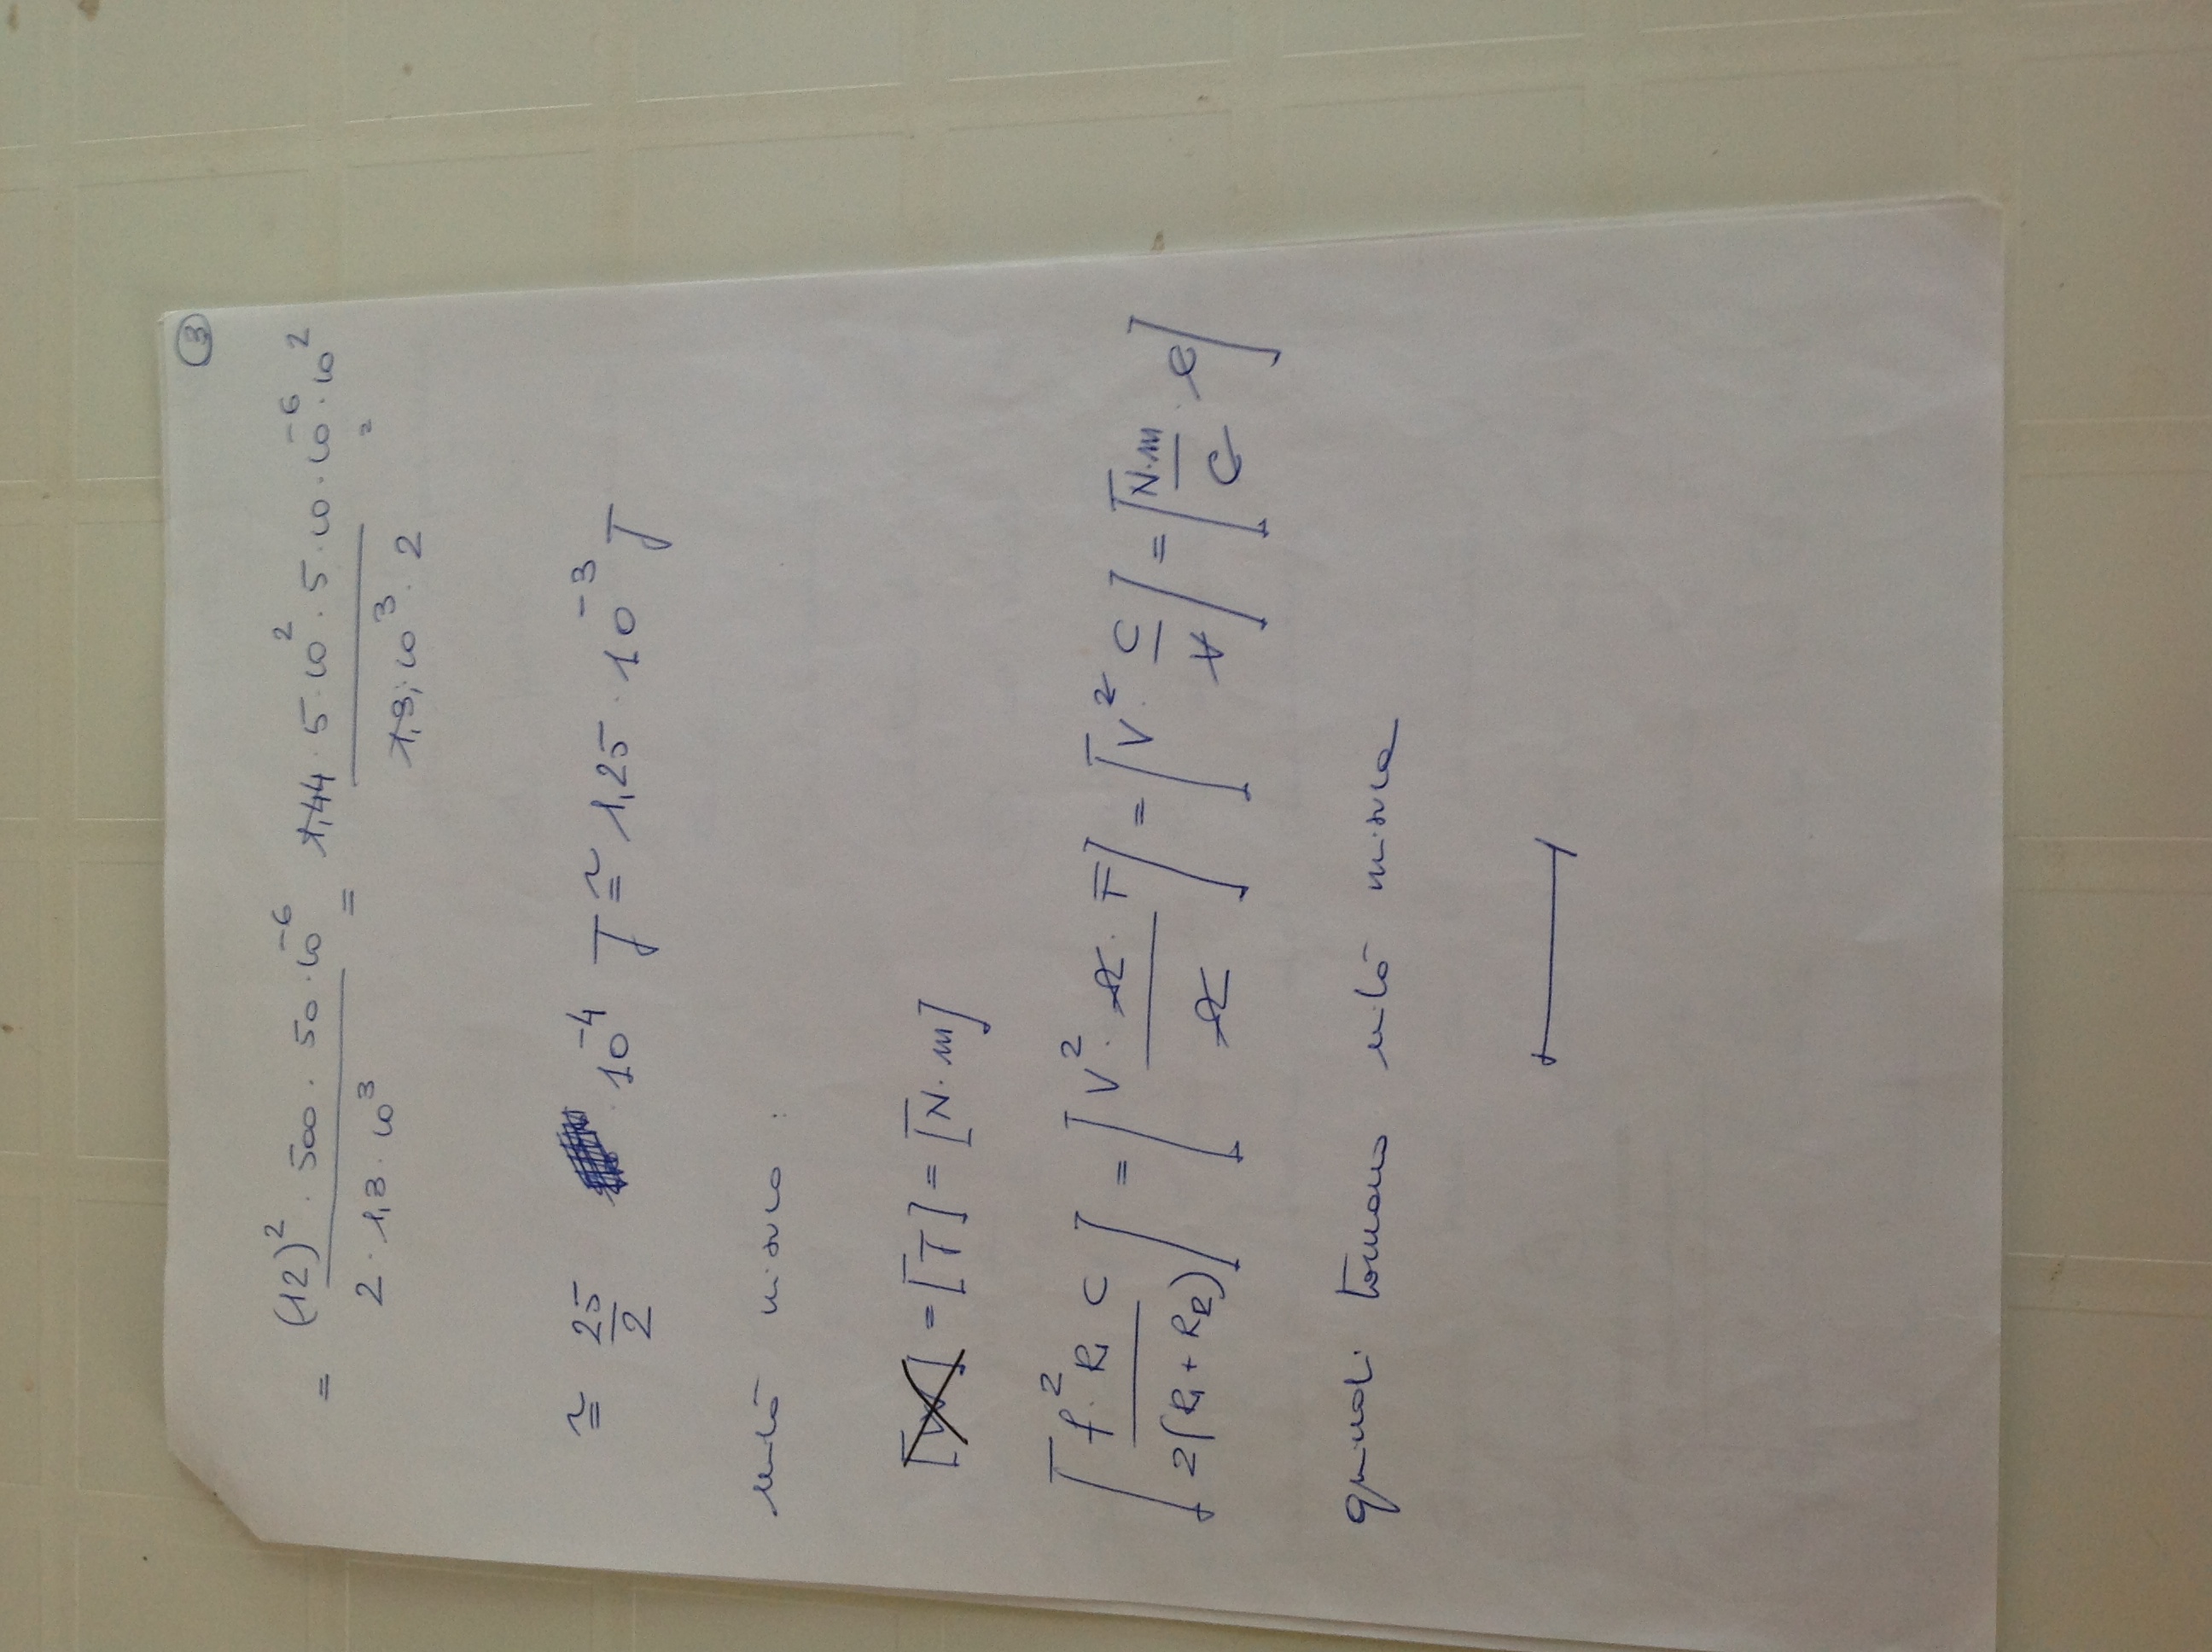 3
= (12)² · 500 · 50 · 10⁻⁶ / 2 · 1,3 · 10³ = 1,44 · 5 · 10² · 5 · 10 · 10⁻⁶ · 10² / 1,3 · 10³ · 2 =
≅ 25/2 · 10⁻⁴ J ≅ 1,25 · 10⁻³ J
unità misura :
[W] = [J] = [N · m]
[f² R₁ C / 2(R₁ + R₂)] = [V² · Ω · F / Ω] = [V² · C / V] = [N·m / C · C]
quindi tornano unità misura